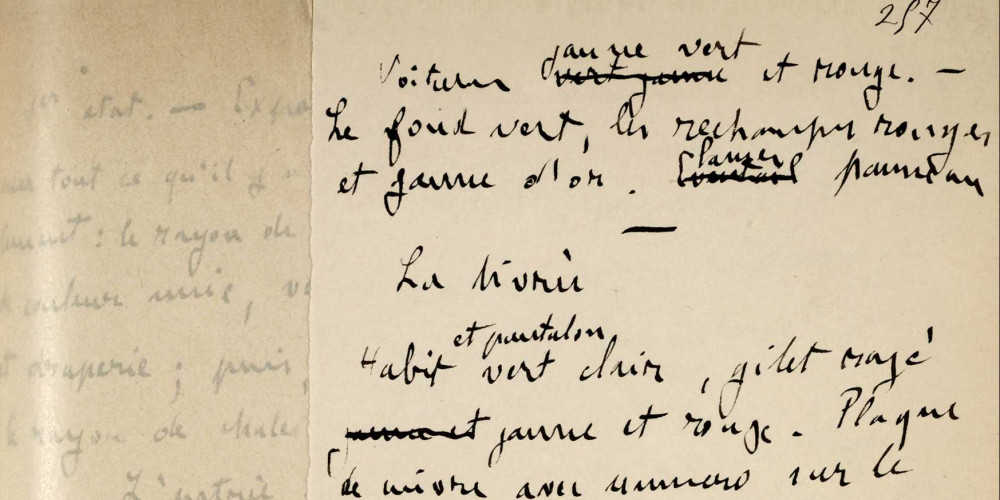 257
Voitures jaune vert et rouge. —
Le fond vert, les rechampis rouges
et jaune d'or. panneau
La livrée
Habit et pantalon vert clair, gilet rayé
jaune et rouge. Plaque
de cuivre avec numéro sur le
état. — Expo
tout ce qu'il y
: le rayon de
couleur unie,
draperie ; puis,
le rayon de